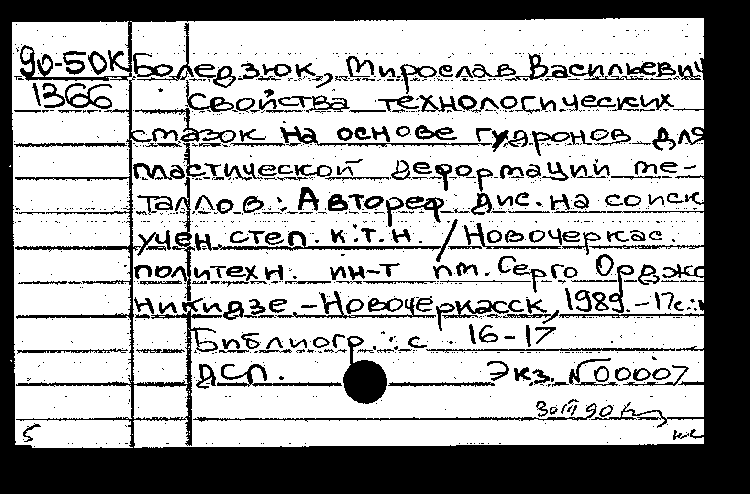 90-50К Боледзюк, Мирослав Васильевич
1366 Свойства технологических
смазок на основе гудронов для
пластической деформации ме-
таллов: Автореф. дис. на соиск
учен. степ. к.т.н. / Новочеркас.
политехн. ин-т им. Серго Орджо
никидзе. - Новочеркасск, 1989. - 17с.:
Библиогр.: с. 16-17
ДСП. Экз. N 00007
5